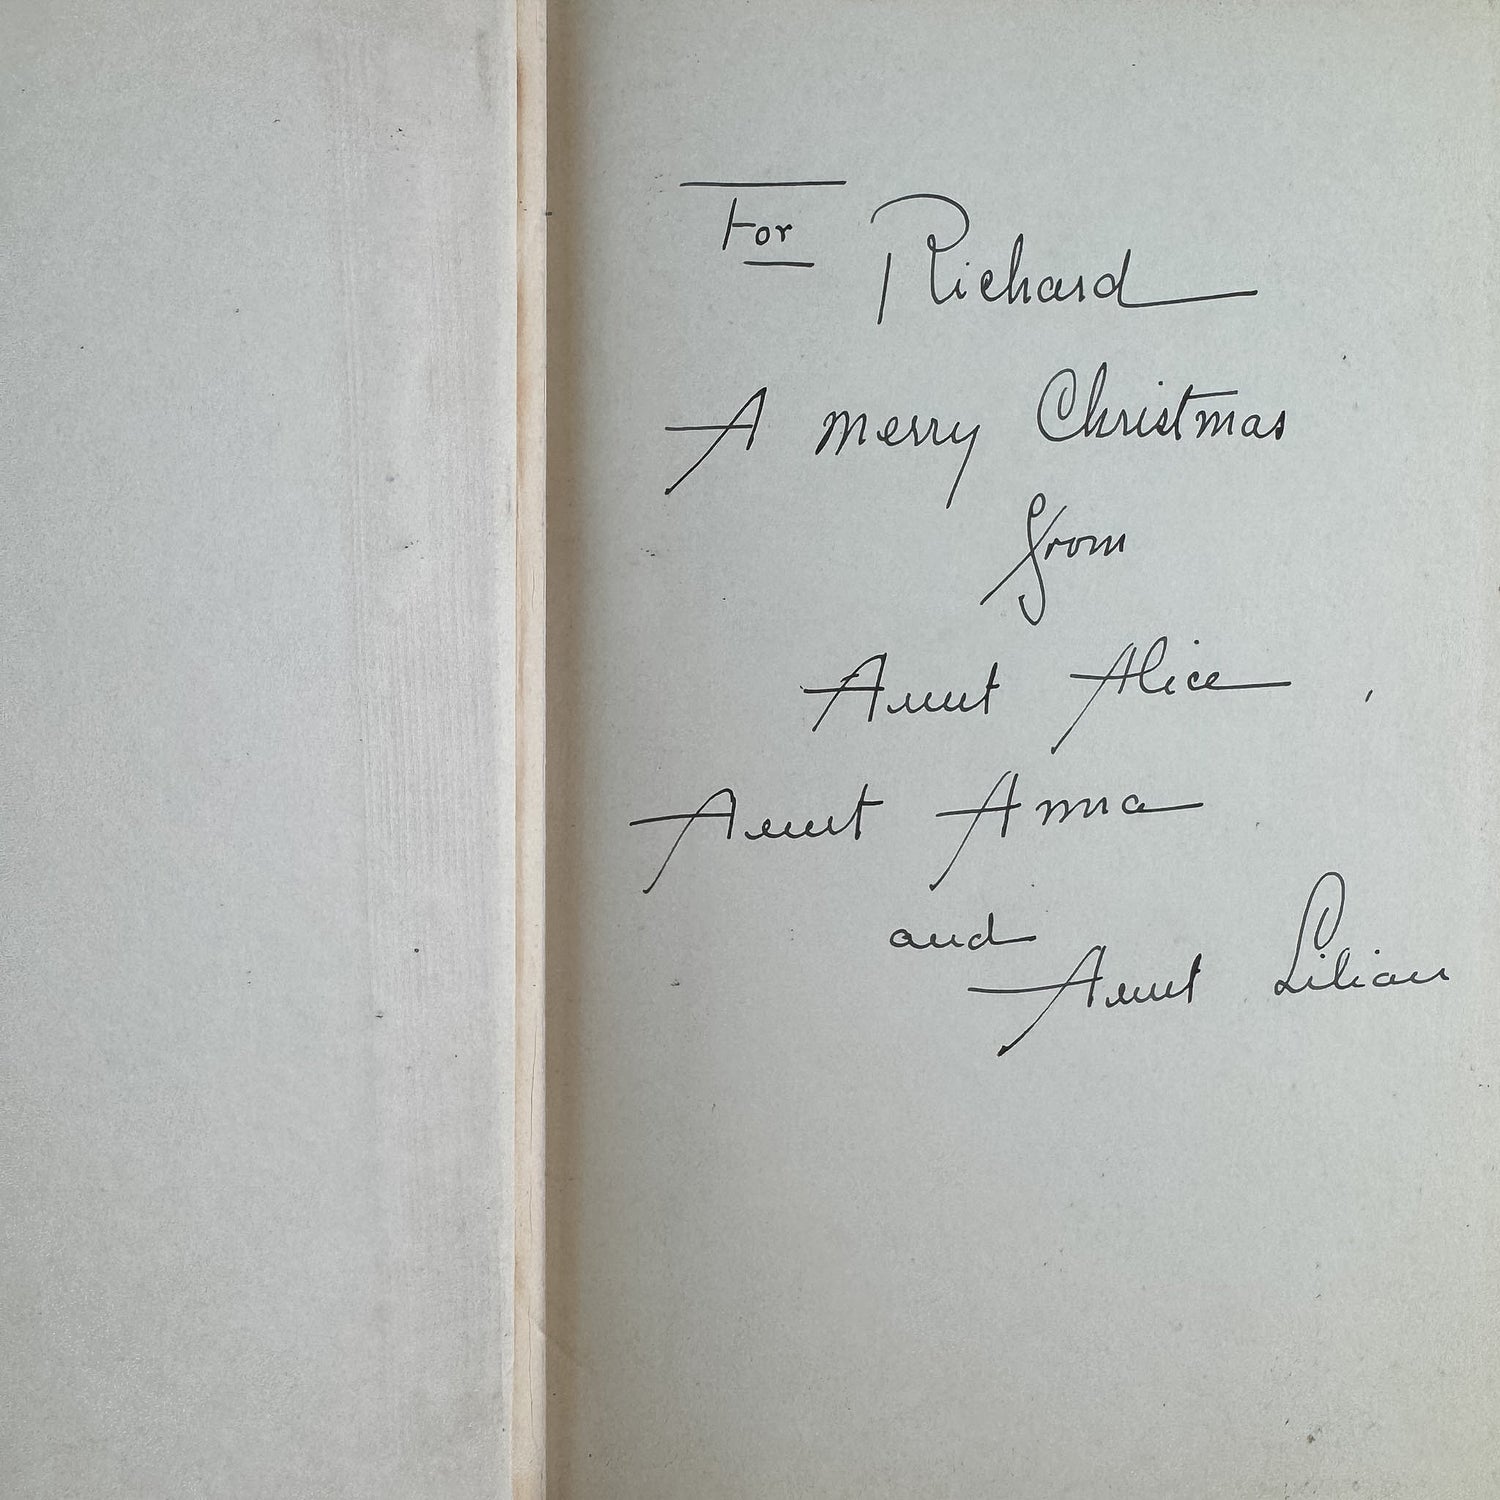 For Richard
A merry Christmas
from
Aunt Alice,
Aunt Anna
and
Aunt Lilian